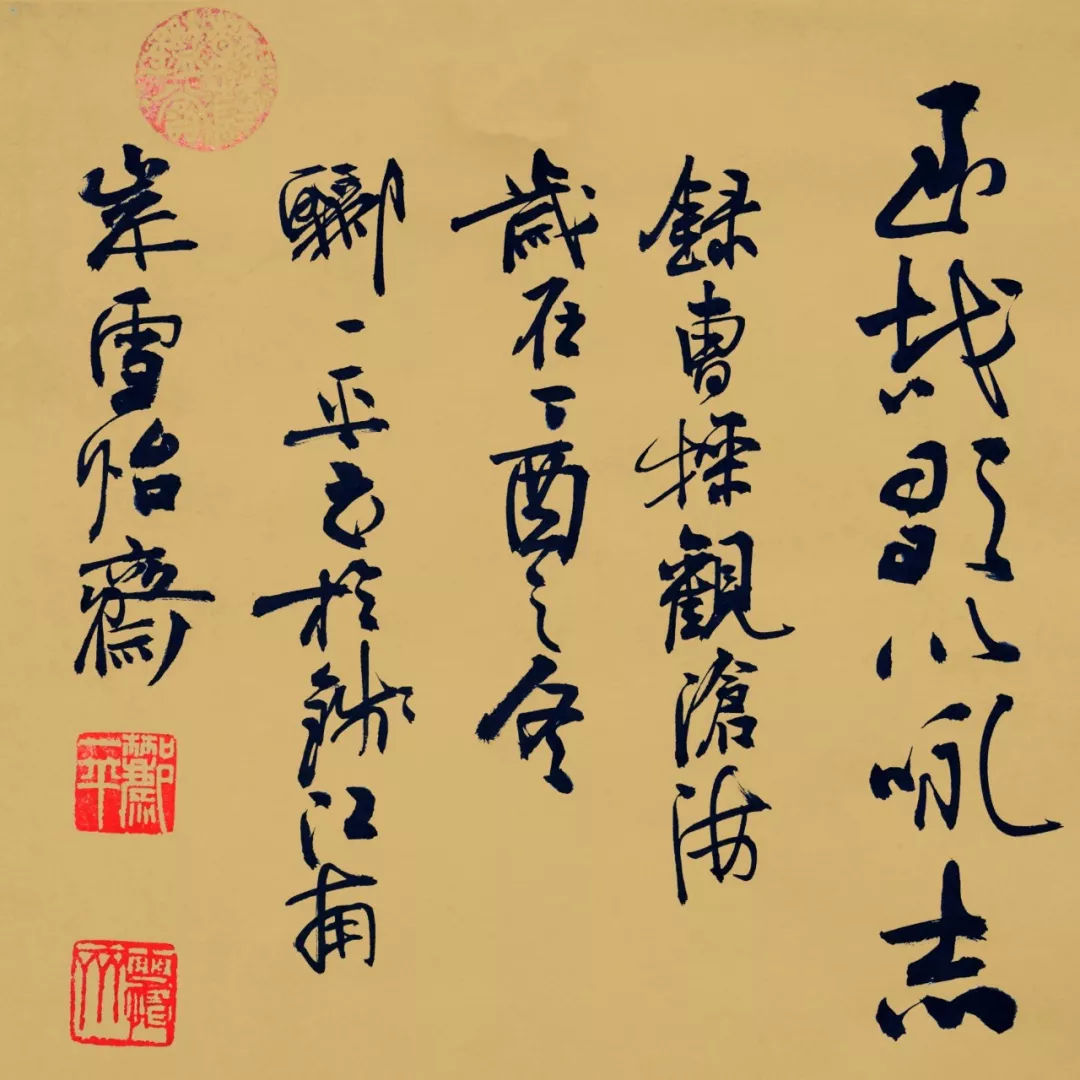 至哉歌以咏志
録曹操觀滄海
歲在丁酉之冬
一平書於錢江南
岸雪怡齋
一平